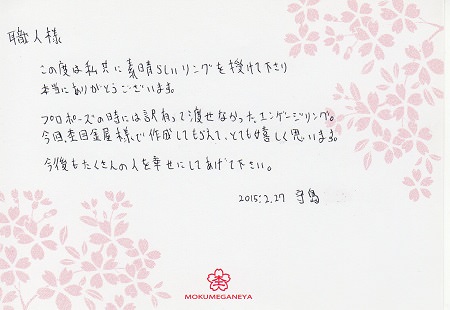 職人様
この度は私共に素晴らしいリングを授けて下さり
本当にありがとうございます。
プロポーズの時には訳あって渡せなかったエンゲージリング。
今回、杢目金屋様で作成してもらえて、とても嬉しく思います。
今後もたくさんの人を幸せにしてあげて下さい。
2015.2.27 守島
杢
MOKUMEGANEYA